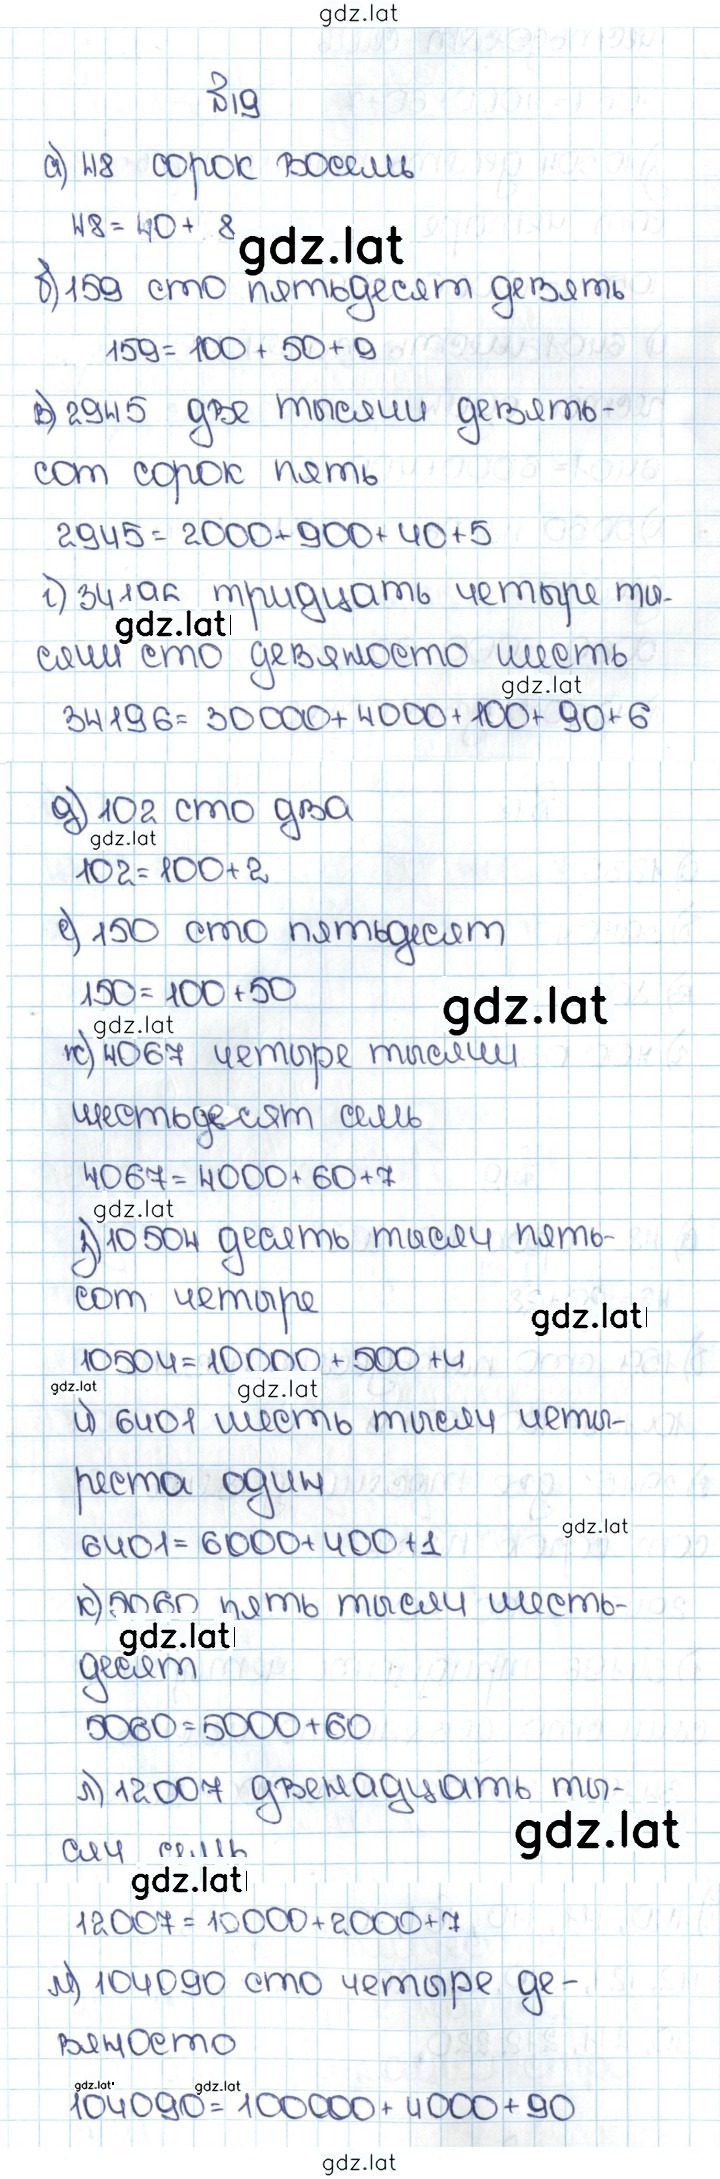 gdz.lat
№19
а) 48 сорок восемь
48 = 40 + 8
gdz.lat
б) 159 сто пятьдесят девять
159 = 100 + 50 + 9
в) 2945 две тысячи девять-
сот сорок пять
2945 = 2000 + 900 + 40 + 5
г) 34196 тридцать четыре ты-
gdz.lat
сячи сто девяносто шесть
gdz.lat
34196 = 30000 + 4000 + 100 + 90 + 6
д) 102 сто два
gdz.lat
102 = 100 + 2
е) 150 сто пятьдесят
150 = 100 + 50
gdz.lat
gdz.lat
ж) 4067 четыре тысячи
шестьдесят семь
4067 = 4000 + 60 + 7
gdz.lat
з) 10504 десять тысяч пять-
сот четыре
gdz.lat
10504 = 10000 + 500 + 4
gdz.lat gdz.lat
и) 6401 шесть тысяч четы-
реста один
gdz.lat
6401 = 6000 + 400 + 1
к) 5060 пять тысяч шесть-
gdz.lat
десят
5060 = 5000 + 60
л) 12007 двенадцать ты-
gdz.lat
сяч семь
gdz.lat
12007 = 10000 + 2000 + 7
м) 104090 сто четыре де-
вяносто
gdz.lat gdz.lat
104090 = 100000 + 4000 + 90
gdz.lat